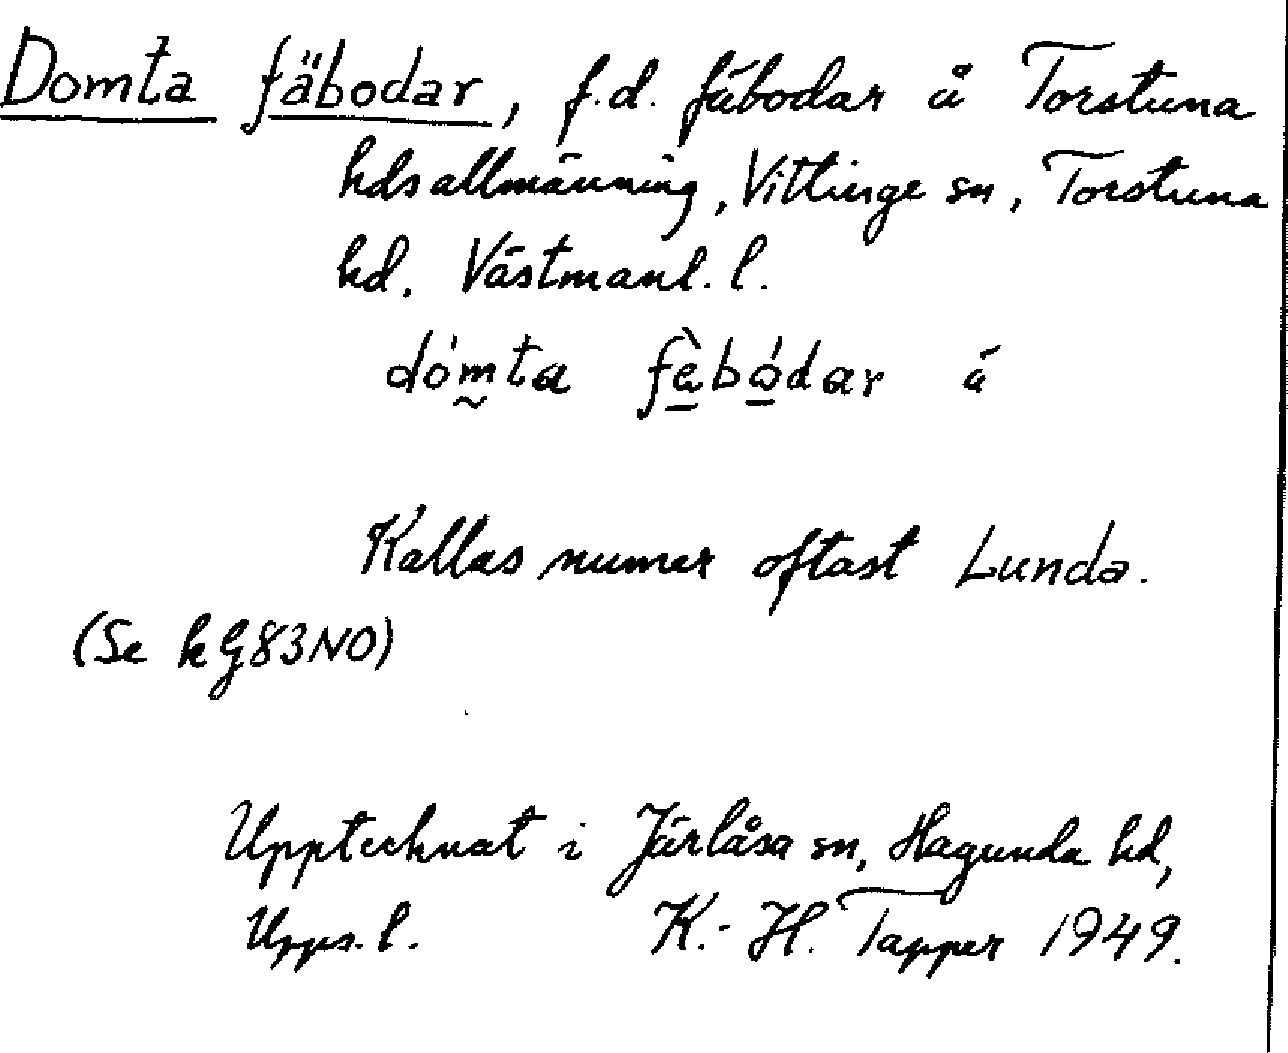 Domta fäbodar, f.d. fäbodar å Torstuna
hdsallmänning, Vittinge sn, Torstuna
hd. Västmanl. l.
dómta fὲbódar á
Kallas numer oftast Lunda.
(Se kG83NO)
Upptecknat i Järlåsa sn, Hagunda hd,
Upps. l. K.-H. Tapper 1949.